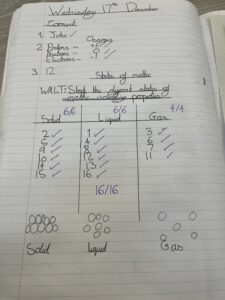 Wednesday 17th December
Connect
1. Joke ✓
Charges
2. Protons - +1 ✓
Neutrons - 0 ✓
Electrons - -1 ✓
3. 12
States of matter
WALT: the different states of
matter including properties
6/6 6/6 4/4
Solid Liquid Gas
2 ✓ 1 ✓ 3 ✓
5 ✓ 4 ✓ 6 ✓
9 ✓ 8 ✓ 7 ✓
10 ✓ 12 ✓ 11 ✓
14 ✓ 13 ✓
15 ✓ 16 ✓
16/16
Solid Liquid Gas